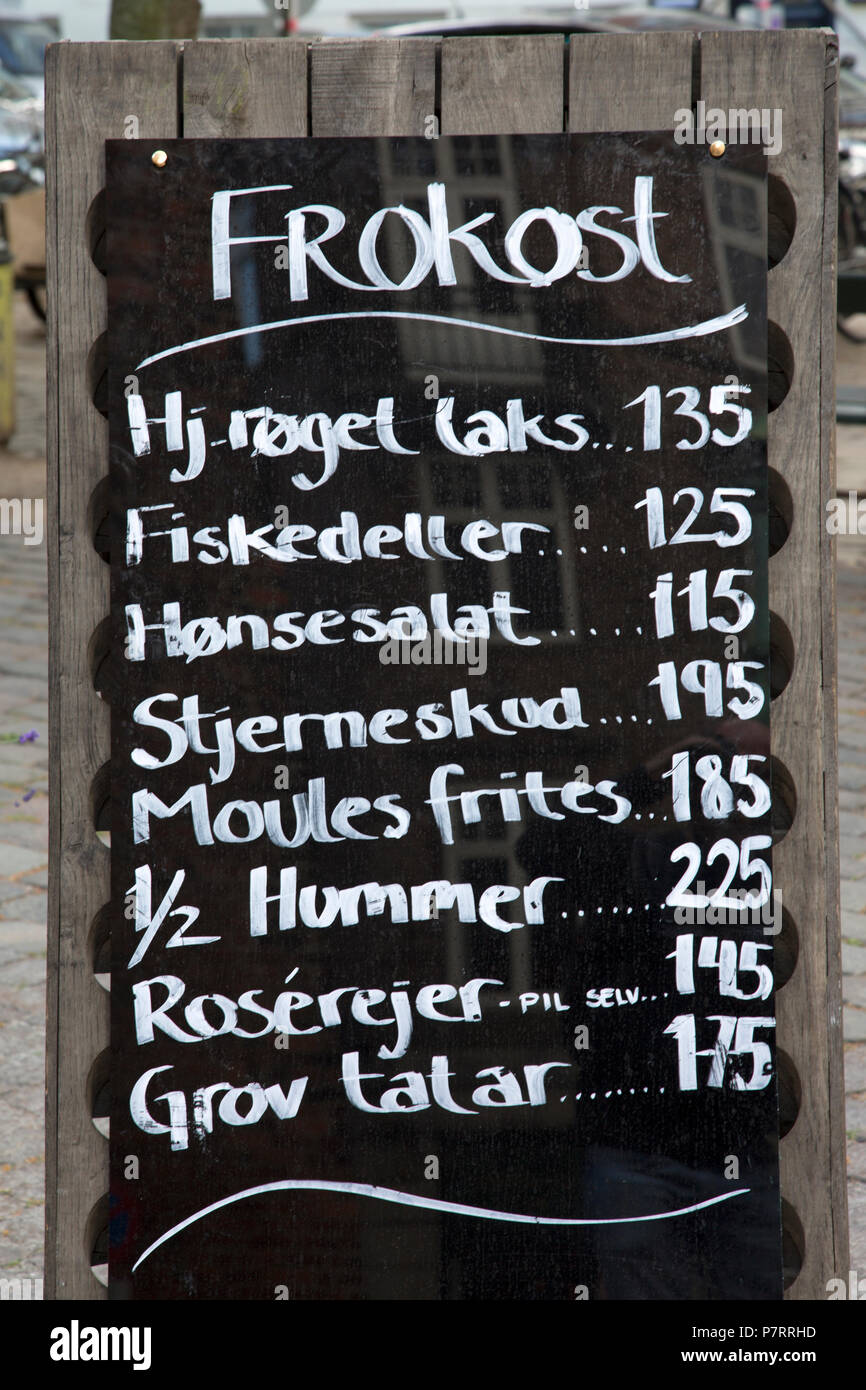 FROKOST
Hj-røget laks... 135
Fiskedeller..... 125
Hønsesalat...... 115
Stjerneskud.... 195
Moules frites... 185
1/2 Hummer....... 225
Roserejer - PIL SELV... 145
Grov tatar........ 175
alamy
Image ID: P7RRHD
www.alamy.com